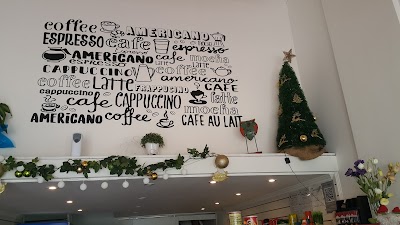 coffee AMERICANO
ESPRESSO cafe espresso
AMERICANO cafe mocha
espresso latte
CAPPUCCINO coffee
coffee Latte FRAPPUCINO CAFE
cappuccino cafe CAPPUCCINO latte
mocha
AMERICANO coffee CAFE AU LAIT
coffee latte AMERICANO
espresso CAPPUCCINO